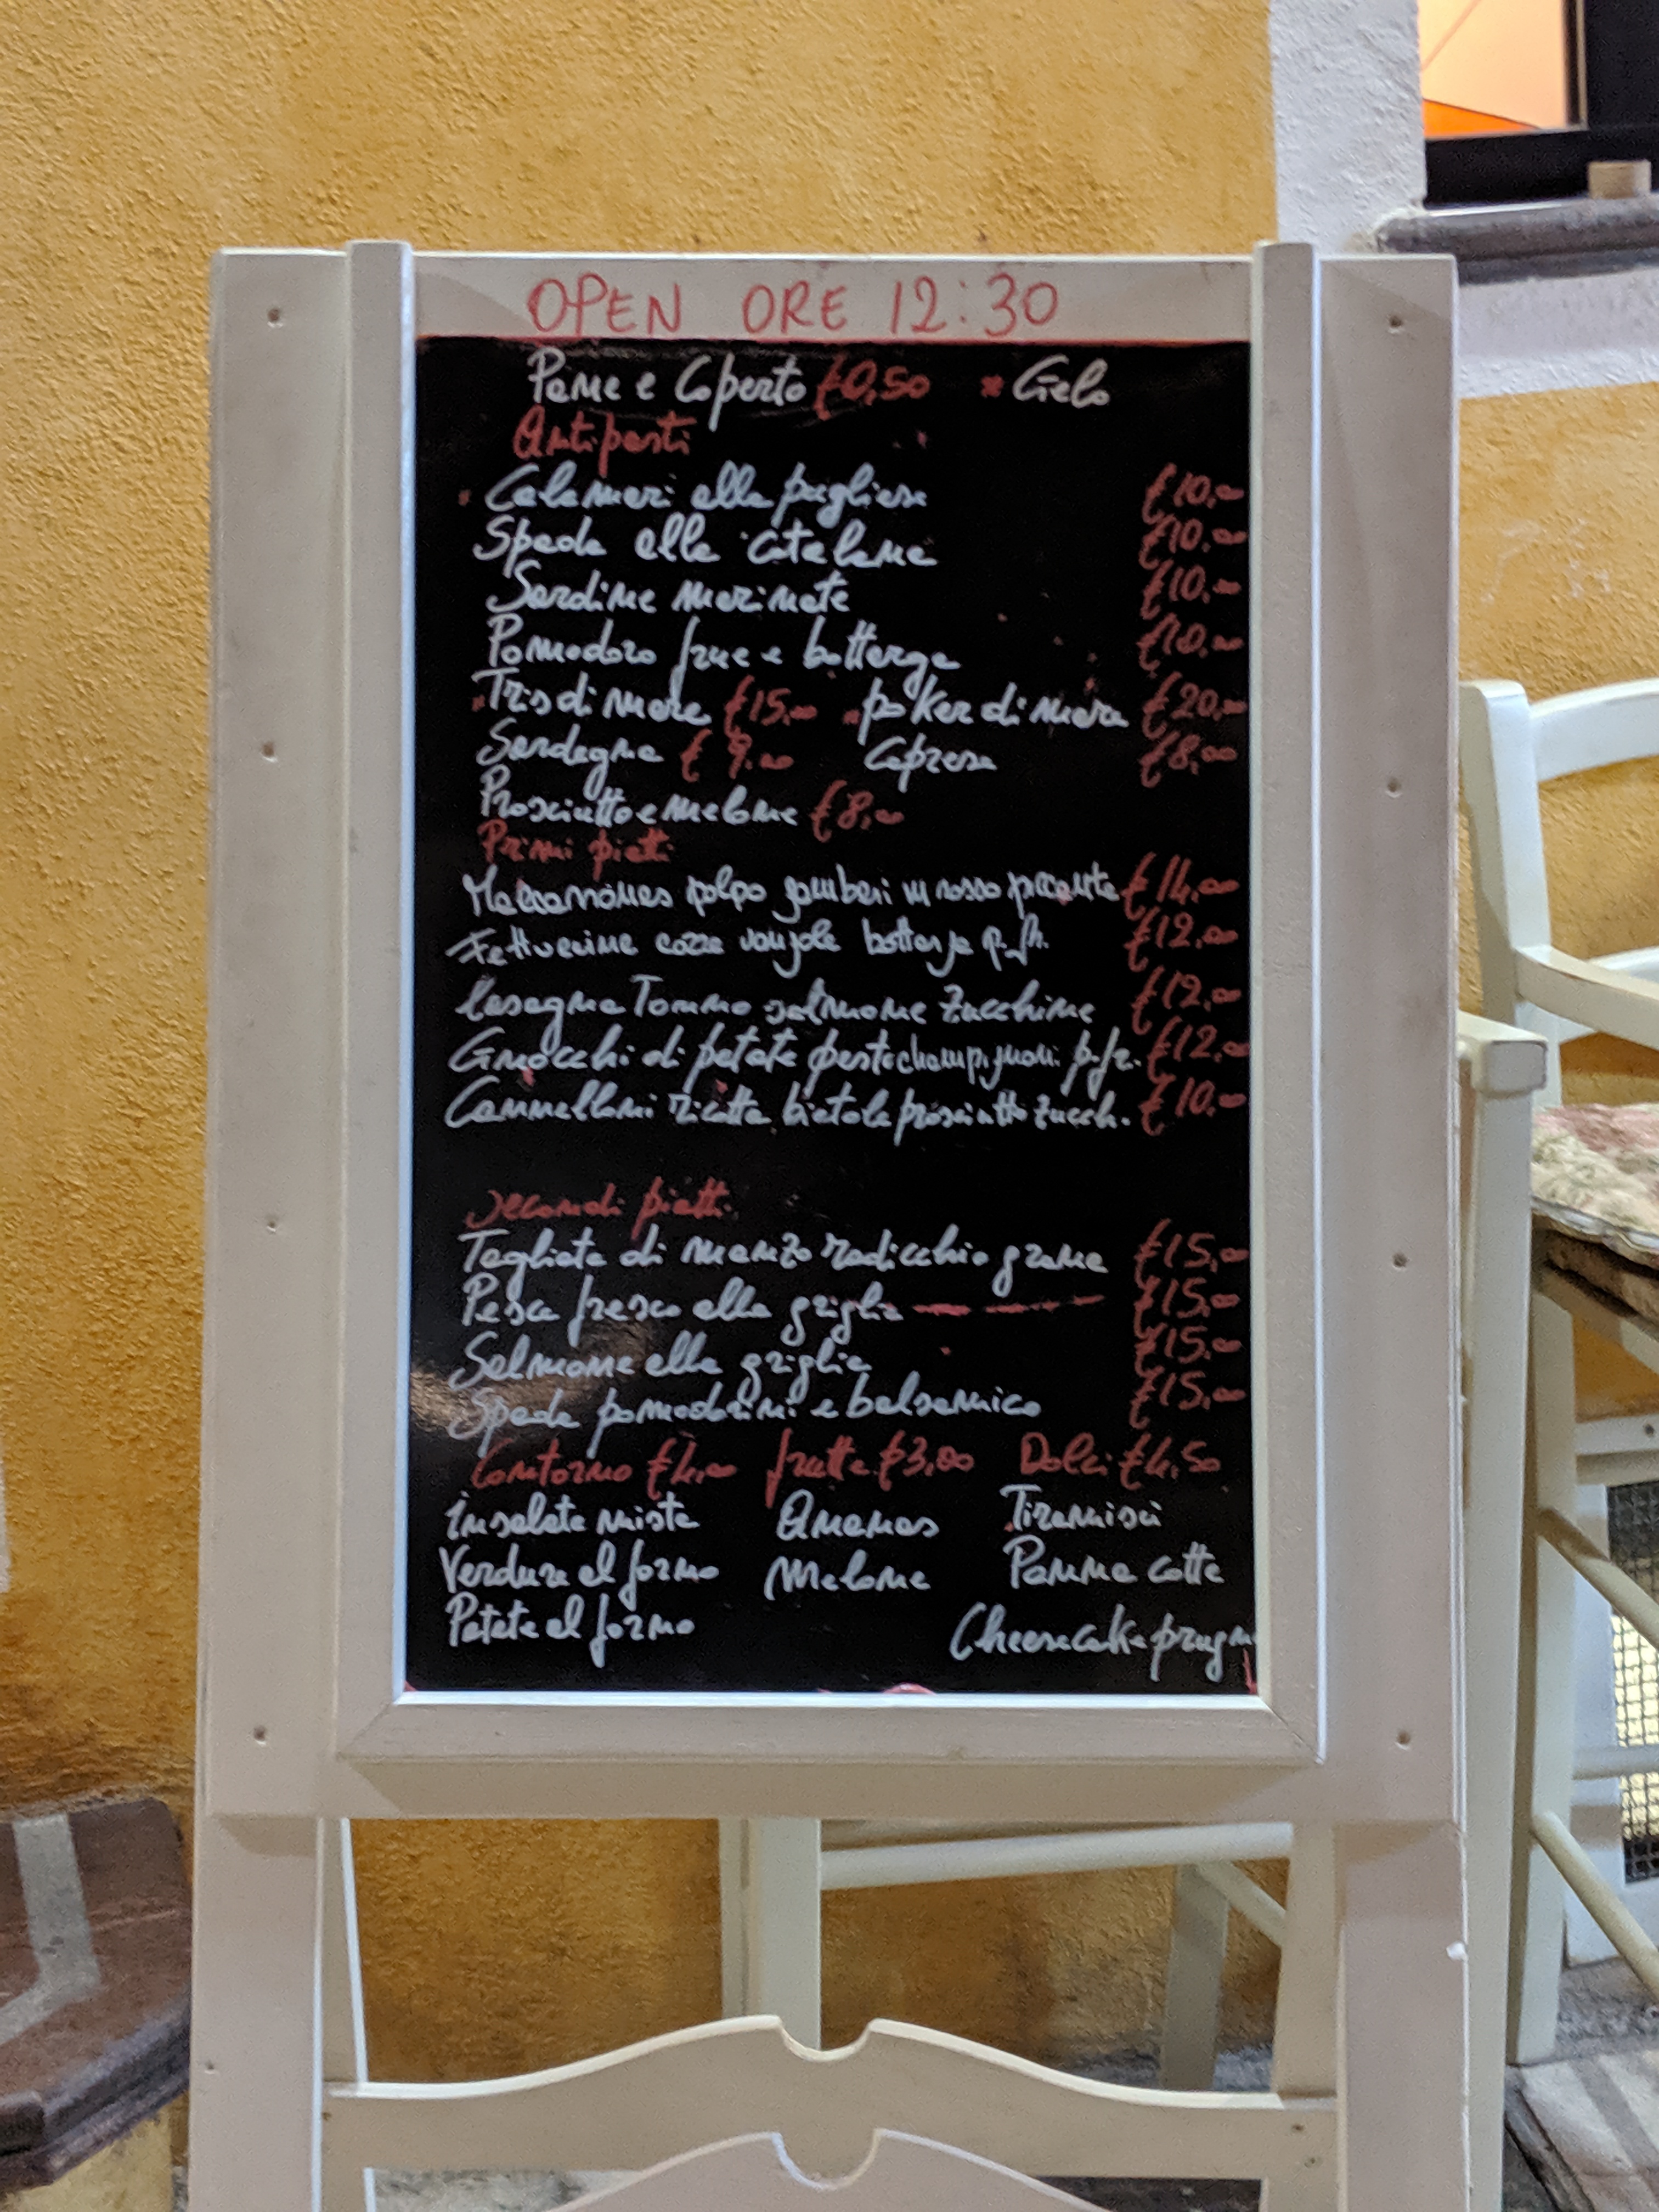 OPEN ORE 12:30
Pane e Coperto €0,50 * Gelo
Antipasti
* Calamari alla pugliese €10,00
Spada alla catalana €10,00
Sardine marinate €10,00
Pomodoro frue e bottarga €10,00
* Tris di mare €15,00 * poker di mare €20,00
Sardegna € 9,00 Caprese €8,00
Prosciutto e melone €8,00
Primi piatti
polpo gamberi in rosso piccante €14,00
Fettuccine cozze vongole bottarga €12,00
lasagna Tonno salmone zucchine €12,00
Gnocchi di patate pesto champignon p.fr. €12,00
Cannelloni ricotta bietole prosciutto zucch. €10,00
Secondi piatti
Tagliata di manzo radicchio grana €15,00
Pesce fresco alla griglia €15,00
Salmone alla griglia €15,00
Spada pomodorini e balsamico €15,00
Contorno €4,00 frutta €3,00 Dolci €4,50
insalata mista Ananas Tiramisù
Verdure al forno Melone Panna cotta
Patate al forno Cheesecake prugn